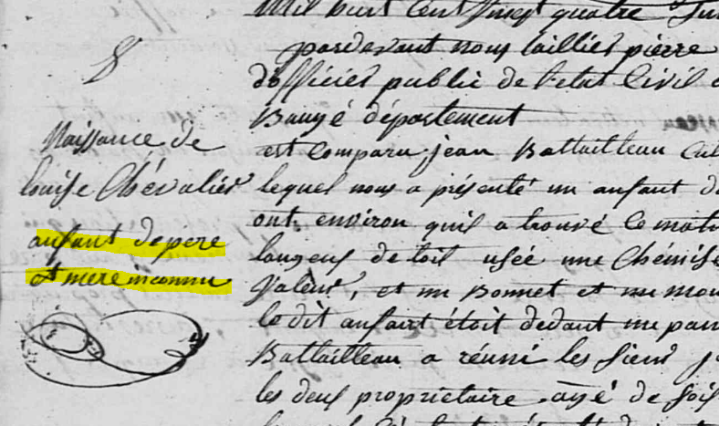 8
Naissance de
Louise Chévalier
anfant de pere
et mere inconnu
Mil huit cent vingt quatre
pardevant nous taillier pierre
d'officier public de l'etat Civil
Baugé département
est Comparu jean Battailleau Cul
lequel nous a présenté un anfant d
ont environ quil a trouvé le matin
langeus de toil usée une Chémise
Valeur, et un Bonnet et un mou
le dit anfant étoit dedant un pan
Battailleau a réuni les siens
les deux proprietaire ayé de